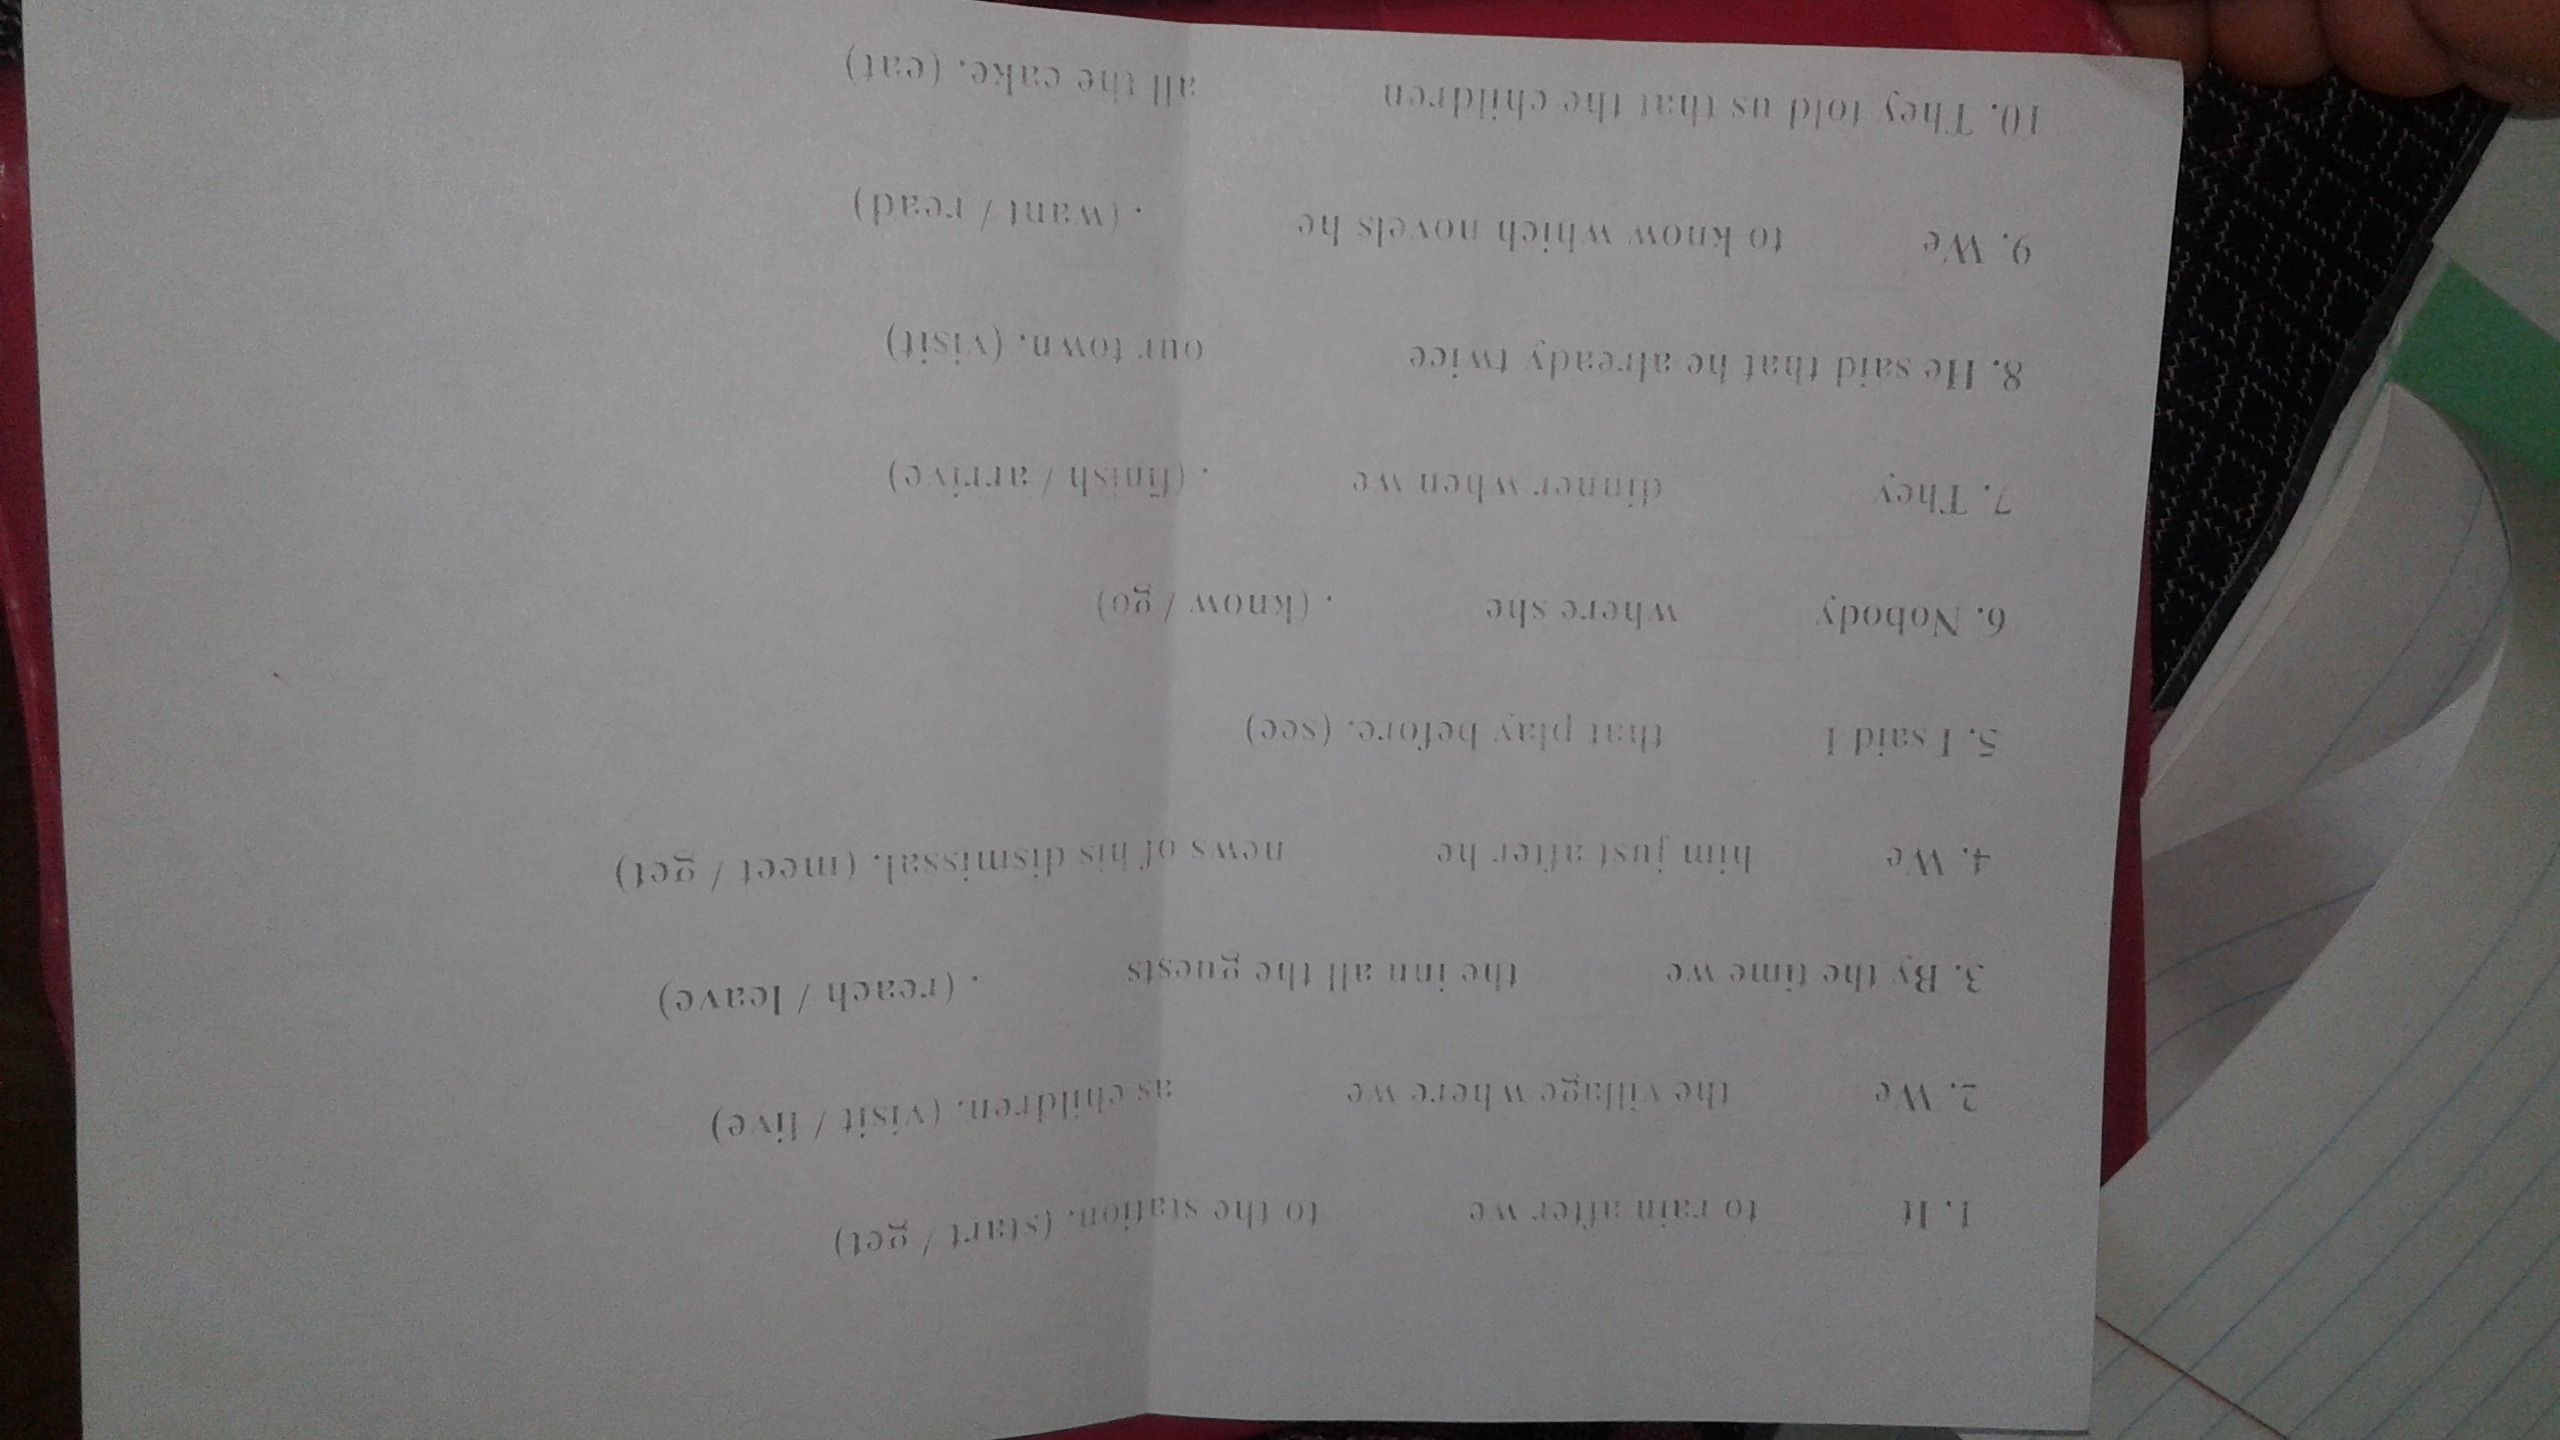 1. It to rain after we to the station. (start / get)
2. We the village where we as children. (visit / live)
3. By the time we the inn all the guests . (reach / leave)
4. We him just after he news of his dismissal. (meet / get)
5. I said I that play before. (see)
6. Nobody where she . (know / go)
7. They dinner when we . (finish / arrive)
8. He said that he already twice our town. (visit)
9. We to know which novels he . (want / read)
10. They told us that the children all the cake. (eat)